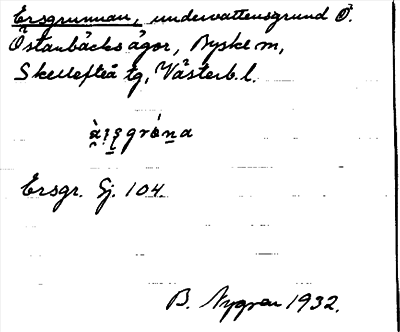 Ersgrunnan, undervattensgrund Ö.
Östanbäcks ägor, Byske sn,
Skellefteå tg, Västerb. l.
Ersgr. Gj. 104.
B. Nygren 1932.